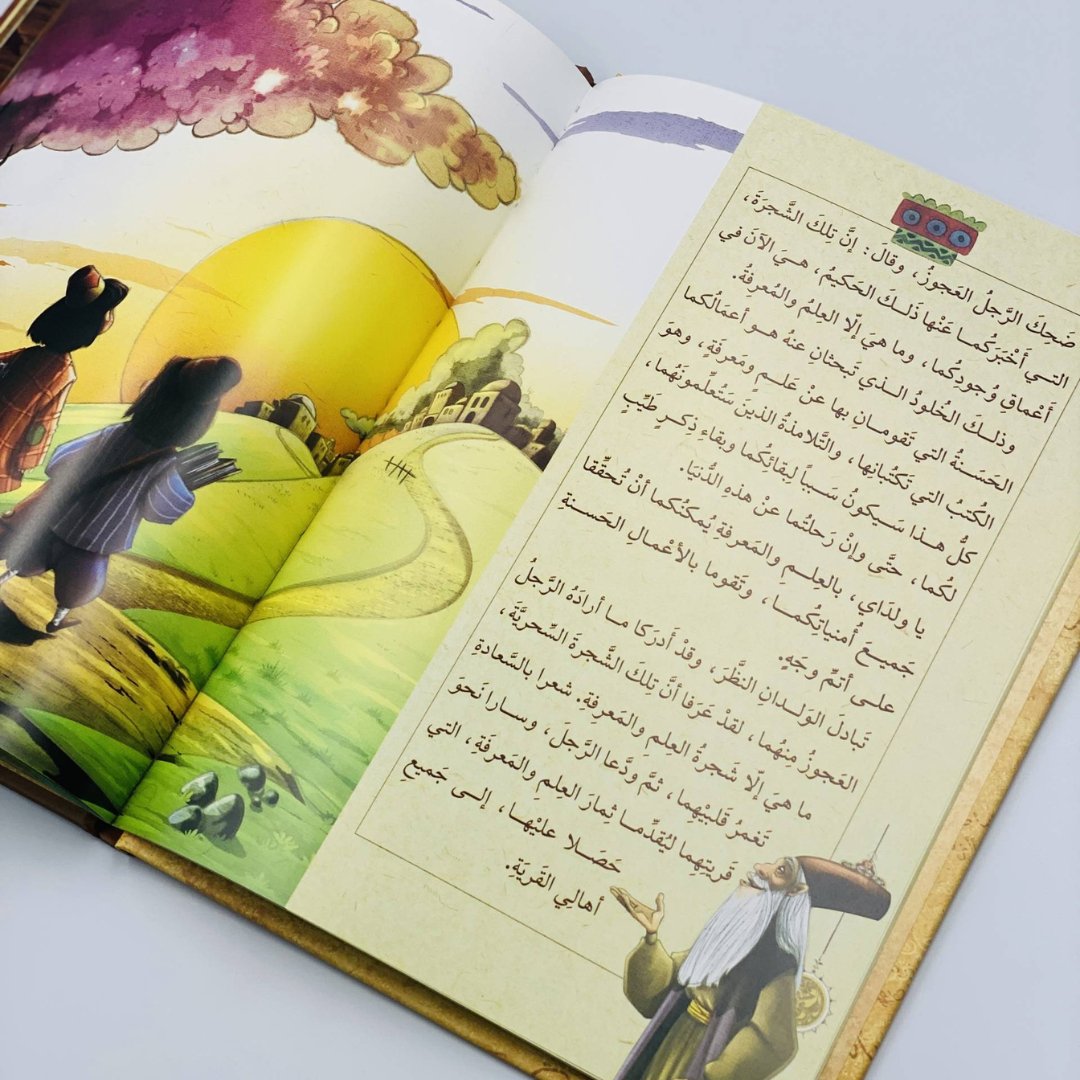 ضَحِكَ الرَّجلُ العَجوزُ، وقالَ: إنَّ تِلكَ الشَّجرَةَ،
التـي أَخْبَرَكُمـا عَنْها ذَلـكَ الحَكيمُ، هـيَ الآنَ في
أَعْماقِ وُجودِكُما، وما هيَ إلّا العِلمُ والمُعرِفةُ.
وذلـكَ الخُلودُ الـذي تَبحثانِ عنهُ هـو أعمَالُكما
الحَسَنةُ التي تَقومـانِ بها عنْ عَلـمٍ ومَعرفَةٍ، وهوَ
الكُتبُ التي تَكتُبانِها، والتَّلامذةُ الذينَ ستُعلِّمونَهُما،
كلُّ هـذا سَـيكونُ سَـبباً لِبقائِكُما وبقاءِ ذِكـرٍ طَيِّبٍ
لَكُما، حتَّى وإنْ رَحلتُما عنْ هذهِ الدُّنيَا.
يا ولدَاي، بالعِلـمِ والمَعرفةِ يُمكنُكما أنْ تُحقِّقا
جَميـعَ أُمنياتِكُمـا، وتَقوما بالأعْمـالِ الحَسـنةِ
علـى أتمِّ وجَهٍ.
تَبادلَ الوَلـدانِ النظَّرَ، وقدْ أَدرَكا مـا أرادَهُ الرَّجلُ
العَجوزُ مِنهُما، لقدْ عَرَفا أنَّ تِلكَ الشَّجرةَ السِّحريَّةَ،
ما هيَ إلّا شَجرةُ العِلمِ والمَعرفةِ. شعرا بالسَّعادةِ
تَغمرُ قَلبيْهِما، ثمَّ ودَّعا الرَّجلَ، وسـارا نَحوَ
قَريتِهما ليُقدِّمـا ثِمارَ العِلمِ والمَعرفَةِ، التي
حَصَـلا عليْهـا، إلـى جَميعِ
أهالِي القَريَةِ.